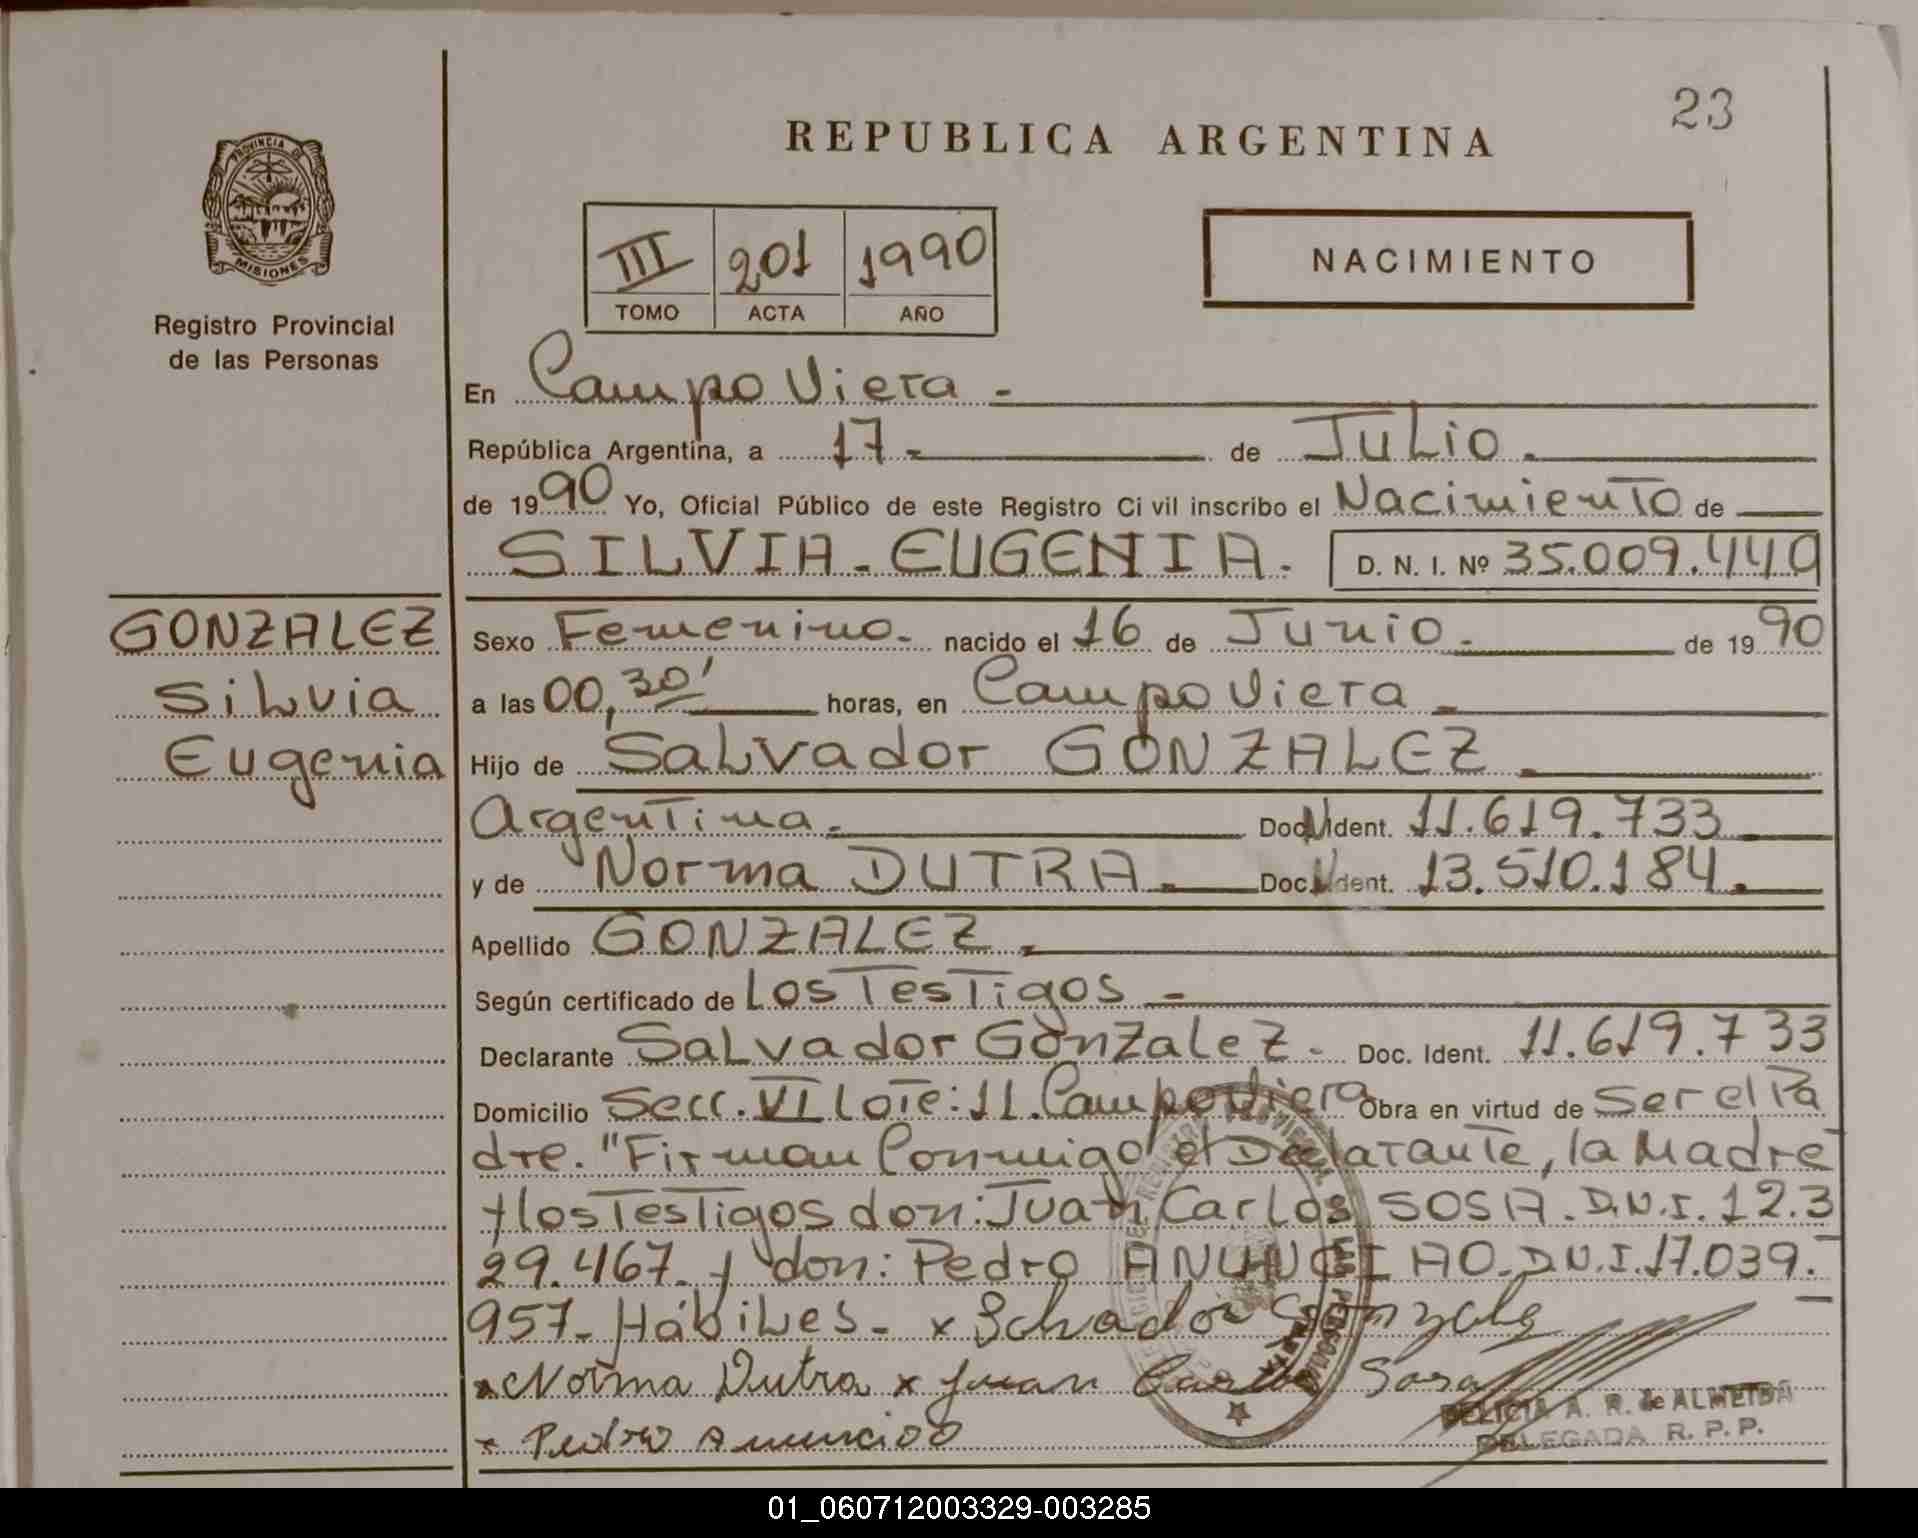 23
REPUBLICA ARGENTINA
PROVINCIA DE
MISIONES
Registro Provincial
de las Personas
III 201 1990
TOMO ACTA AÑO
NACIMIENTO
En Campo Viera -
República Argentina, a 17- de Julio.
de 1990 Yo, Oficial Público de este Registro Ci vil inscribo el Nacimiento de
SILVIA-EUGENIA. D. N. I. Nº 35.009.440
GONZALEZ
Silvia
Eugenia
Sexo Femenino- nacido el 16 de Junio. de 1990
a las 00,30' horas, en Campo Viera -
Hijo de Salvador GONZALEZ -
Argentina. Doc. Ident. 11.619.733
y de Norma DUTRA - Doc. Ident. 13.510.184.
Apellido GONZALEZ -
Según certificado de Los Testigos -
Declarante Salvador Gonzalez. Doc. Ident. 11.619.733
Domicilio Secc. VI Lote: 11. Campo Viera Obra en virtud de ser el Pa
dre. "Firman Conmigo el Declarante, la Madre
y los Testigos don: Juan Carlos SOSA. D.N.I. 12.3
29.467- y don: Pedro ANUNCIAO. D.N.I. 17.039.-
957- Hábiles- x Salvador Gonzalez
x Norma Dutra x Juan Carlos Sosa
x Pedro
DELICIA A. R. de ALMEIDA
DELEGADA R. P. P.
01_060712003329-003285